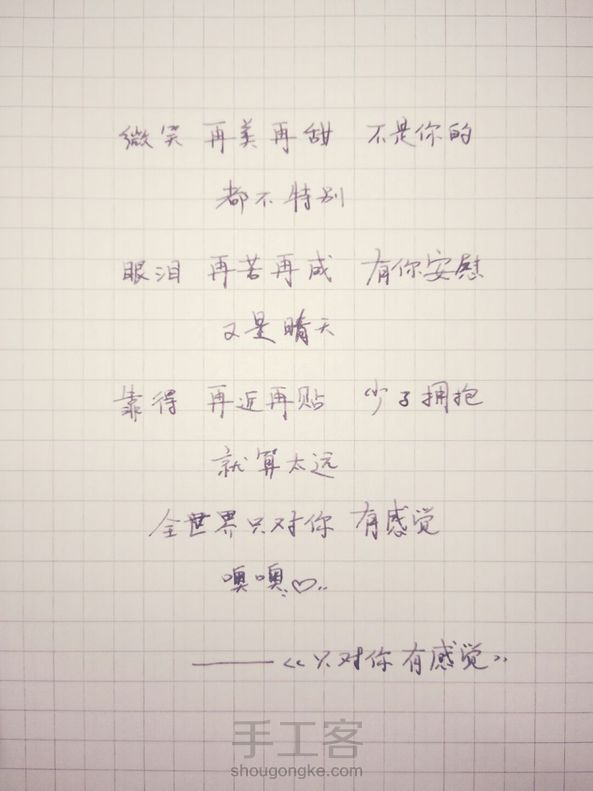 微笑 再美再甜 不是你的
都不特别
眼泪 再苦再咸 有你安慰
又是晴天
靠得 再近再贴 少了拥抱
就算太远
全世界只对你 有感觉
噢噢♡..
——《只对你有感觉》
手工客
shougongke.com